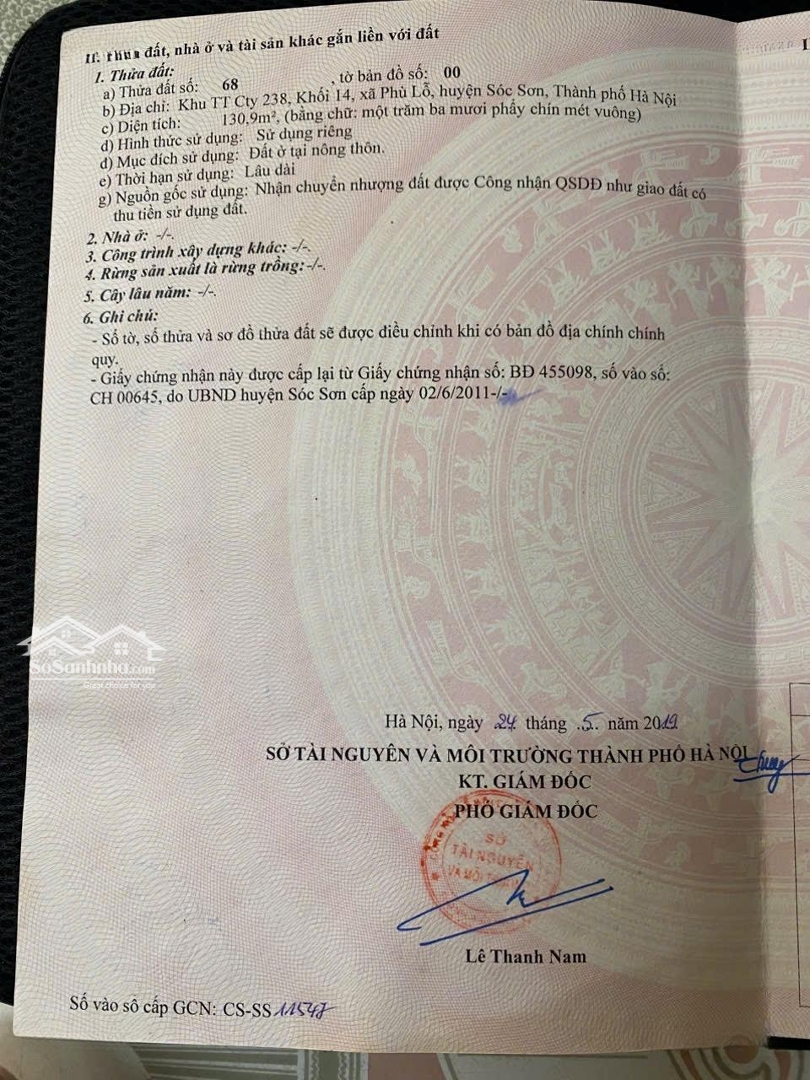 II. Thửa đất, nhà ở và tài sản khác gắn liền với đất
1. Thửa đất:
a) Thửa đất số: 68 , tờ bản đồ số: 00
b) Địa chỉ: Khu TT Cty 238, Khối 14, xã Phù Lỗ, huyện Sóc Sơn, Thành phố Hà Nội
c) Diện tích: 130,9m², (bằng chữ: một trăm ba mươi phẩy chín mét vuông)
d) Hình thức sử dụng: Sử dụng riêng
đ) Mục đích sử dụng: Đất ở tại nông thôn.
e) Thời hạn sử dụng: Lâu dài
g) Nguồn gốc sử dụng: Nhận chuyển nhượng đất được Công nhận QSDĐ như giao đất có
thu tiền sử dụng đất.
2. Nhà ở: -/-.
3. Công trình xây dựng khác: -/-.
4. Rừng sản xuất là rừng trồng: -/-.
5. Cây lâu năm: -/-.
6. Ghi chú:
- Số tờ, số thửa và sơ đồ thửa đất sẽ được điều chỉnh khi có bản đồ địa chính chính
quy.
- Giấy chứng nhận này được cấp lại từ Giấy chứng nhận số: BĐ 455098, số vào số:
CH 00645, do UBND huyện Sóc Sơn cấp ngày 02/6/2011-/-
SoSanhnha.com
Hà Nội, ngày 24 tháng .5. năm 2019
SỞ TÀI NGUYÊN VÀ MÔI TRƯỜNG THÀNH PHỐ HÀ NỘI
KT. GIÁM ĐỐC
PHÓ GIÁM ĐỐC
SỞ
TÀI NGUYÊN
VÀ MÔI TRƯỜNG
Lê Thanh Nam
Số vào sổ cấp GCN: CS-SS 11547